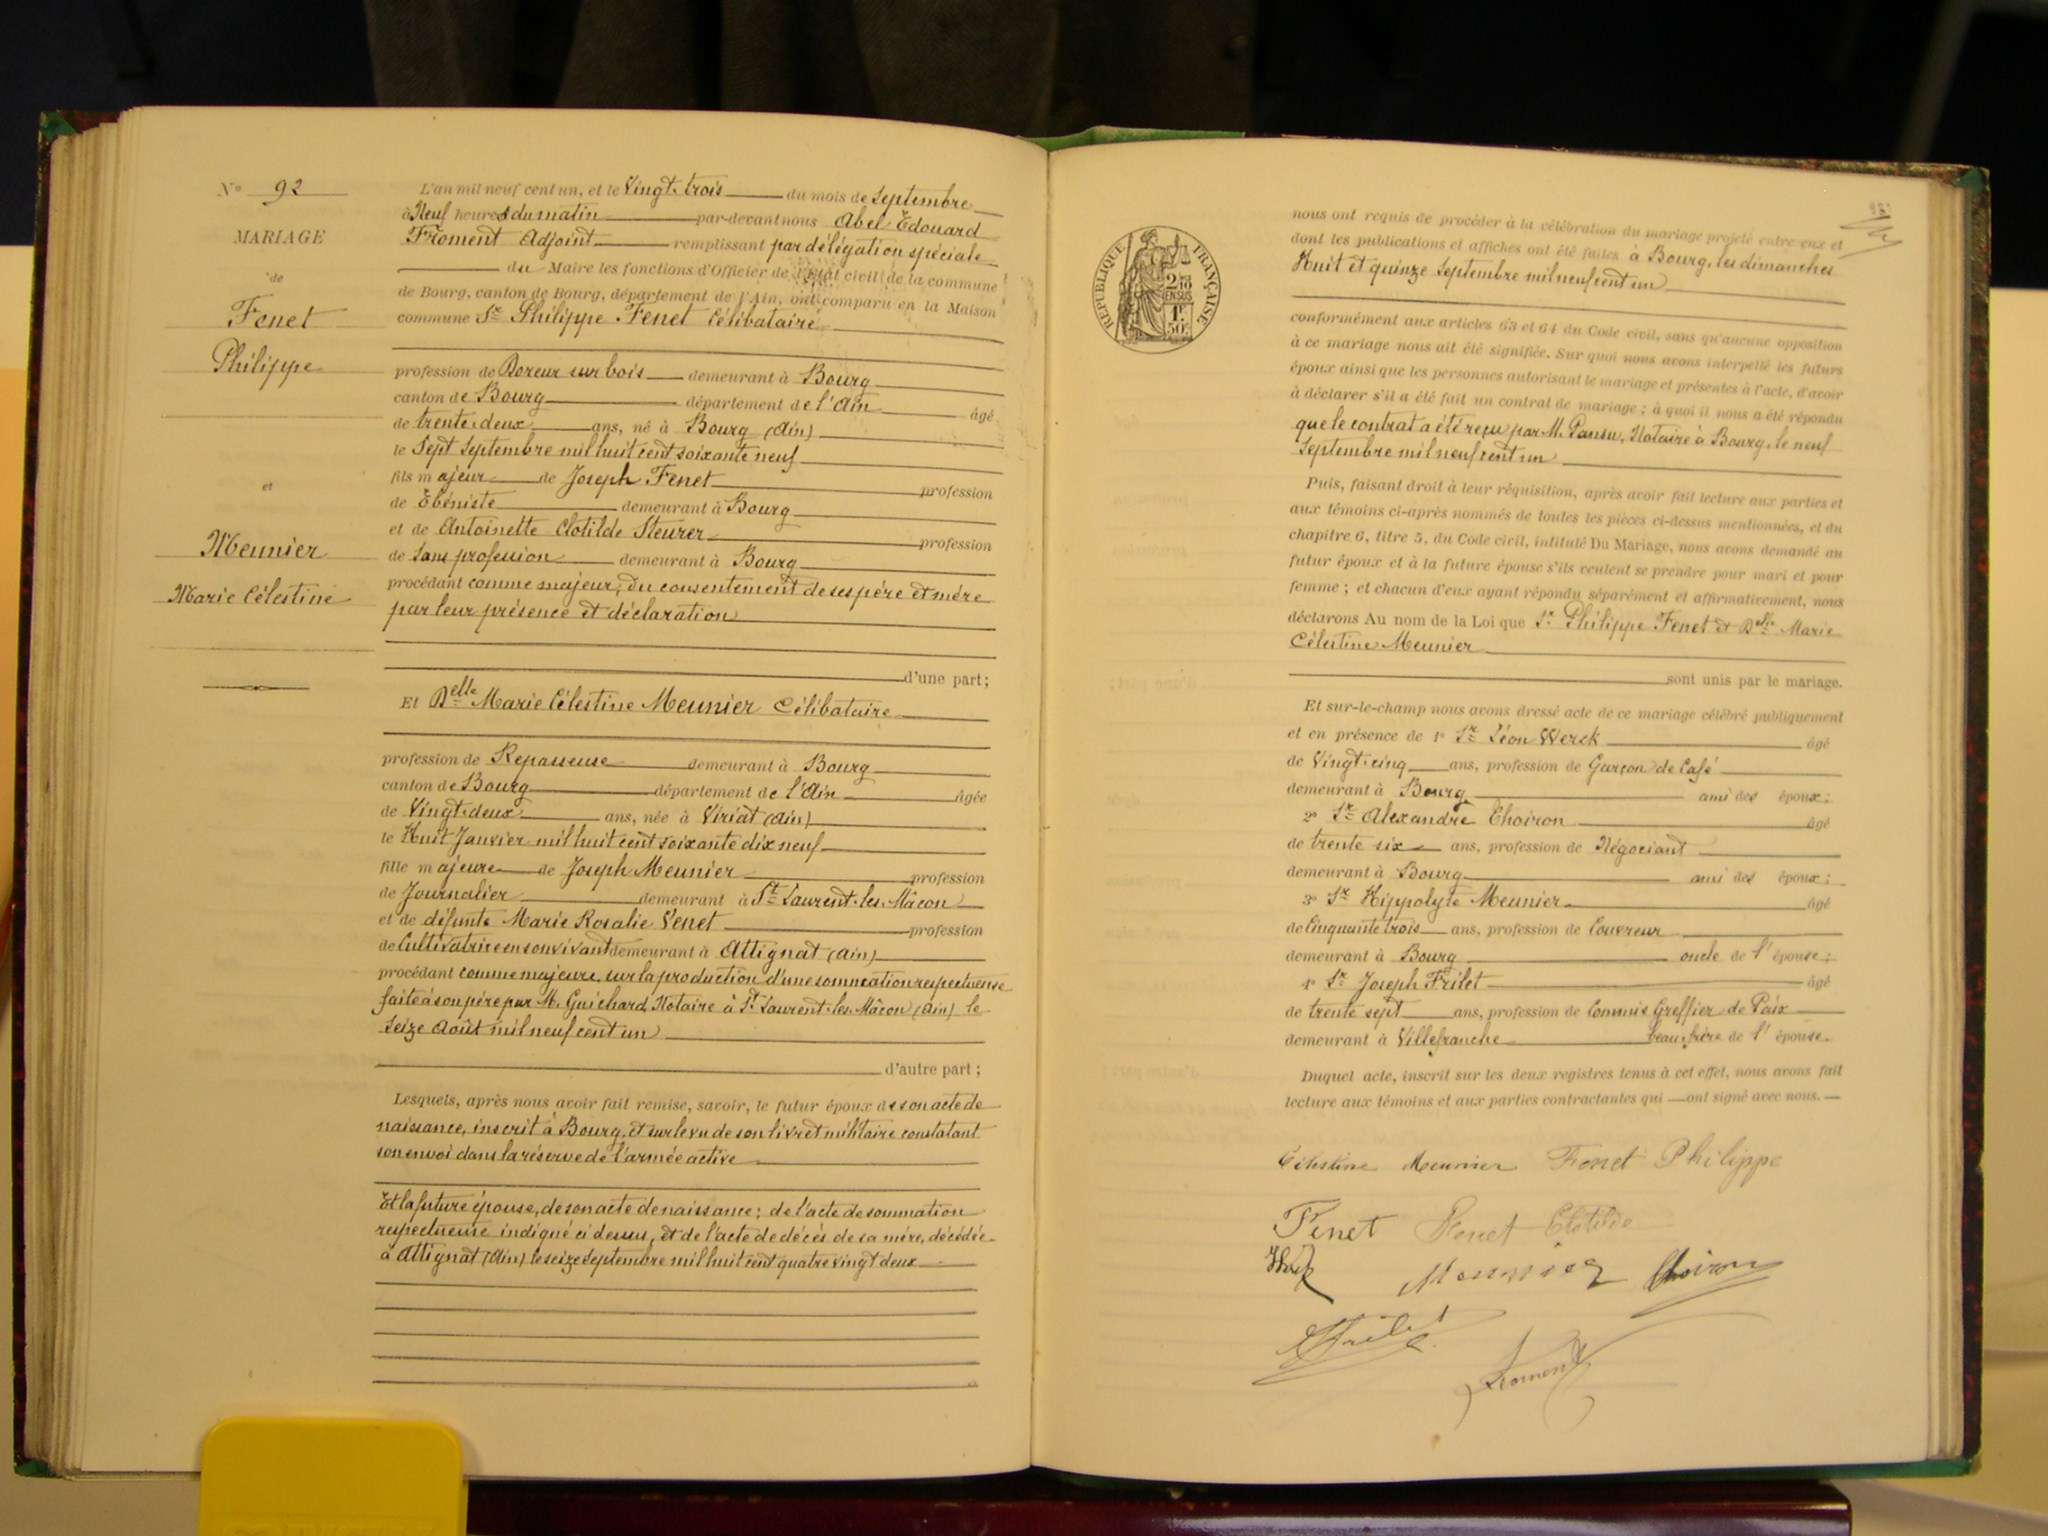 N° 92
MARIAGE
de
Fenet
Philippe
et
Meunier
Marie Célestine
L'an mil neuf cent un, et le Vingt-trois du mois de Septembre
à Neuf heures du matin par-devant nous Abel Edouard
Froment Adjoint remplissant par délégation spéciale
du Maire les fonctions d'Officier de l'Etat civil de la commune
de Bourg, canton de Bourg, département de l'Ain, ont comparu en la Maison
commune Sr Philippe Fenet Célibataire
profession de Doreur sur bois demeurant à Bourg
canton de Bourg département de l'Ain âgé
de trente-deux ans, né à Bourg (Ain)
le Sept Septembre mil huit cent soixante neuf
fils majeur de Joseph Fenet profession
de Ebéniste demeurant à Bourg
et de Antoinette Clotilde Steurer profession
de Sans profession demeurant à Bourg
procédant comme majeur, du consentement de ses père et mère
par leur présence et déclaration
d'une part;
Et Delle Marie Célestine Meunier Célibataire
profession de Repasseuse demeurant à Bourg
canton de Bourg département de l'Ain âgée
de Vingt-deux ans, née à Viriat (Ain)
le Huit Janvier mil huit cent soixante dix neuf
fille majeure de Joseph Meunier profession
de Journalier demeurant à St Laurent-les-Mâcon
et de défunte Marie Rosalie Venet profession
de Cultivatrice en son vivant demeurant à Attignat (Ain)
procédant comme majeure, sur la production d'une sommation respectueuse
faite à son père par M. Guichard, Notaire à St Laurent-les-Mâcon (Ain) le
Seize Août mil neuf cent un
d'autre part;
Lesquels, après nous avoir fait remise, savoir, le futur époux de son acte de
naissance, inscrit à Bourg, et sur le vu de son livret militaire constatant
son envoi dans la réserve de l'armée active
Et la future épouse, de son acte de naissance; de l'acte de sommation
respectueuse indiqué ci dessus, et de l'acte de décès de sa mère, décédée
à Attignat (Ain) le seize Septembre mil huit cent quatre vingt deux
RÉPUBLIQUE FRANÇAISE
2/10
EN SUS
1F
50c
nous ont requis de procéder à la célébration du mariage projeté entre eux et
dont les publications et affiches ont été faites à Bourg, les dimanches
Huit et quinze Septembre mil neuf cent un
conformément aux articles 63 et 64 du Code civil, sans qu'aucune opposition
à ce mariage nous ait été signifiée. Sur quoi nous avons interpellé les futurs
époux ainsi que les personnes autorisant le mariage et présentes à l'acte, d'avoir
à déclarer s'il a été fait un contrat de mariage; à quoi il nous a été répondu
que le contrat a été reçu par M. Pansu, Notaire à Bourg, le neuf
Septembre mil neuf cent un
Puis, faisant droit à leur réquisition, après avoir fait lecture aux parties et
aux témoins ci-après nommés de toutes les pièces ci-dessus mentionnées, et du
chapitre 6, titre 5, du Code civil, intitulé Du Mariage, nous avons demandé au
futur époux et à la future épouse s'ils veulent se prendre pour mari et pour
femme; et chacun d'eux ayant répondu séparément et affirmativement, nous
déclarons Au nom de la Loi que Sr Philippe Fenet et Delle Marie
Célestine Meunier
sont unis par le mariage.
Et sur-le-champ nous avons dressé acte de ce mariage célébré publiquement
et en présence de 1° Sr Léon Werck âgé
de Vingt-cinq ans, profession de Garçon de Café
demeurant à Bourg ami des époux;
2° Sr Alexandre Thoiron âgé
de trente six ans, profession de Négociant
demeurant à Bourg ami des époux;
3° Sr Hippolyte Meunier âgé
de Cinquante trois ans, profession de Couvreur
demeurant à Bourg oncle de l'épouse;
4° Sr Joseph Frilet âgé
de trente sept ans, profession de Commis Greffier de Paix
demeurant à Villefranche beau-frère de l'épouse.
Duquel acte, inscrit sur les deux registres tenus à cet effet, nous avons fait
lecture aux témoins et aux parties contractantes qui ont signé avec nous.
Célestine Meunier Fenet Philippe
Fenet Fenet Clotilde
Meunier Thoiron
Frilet
Froment